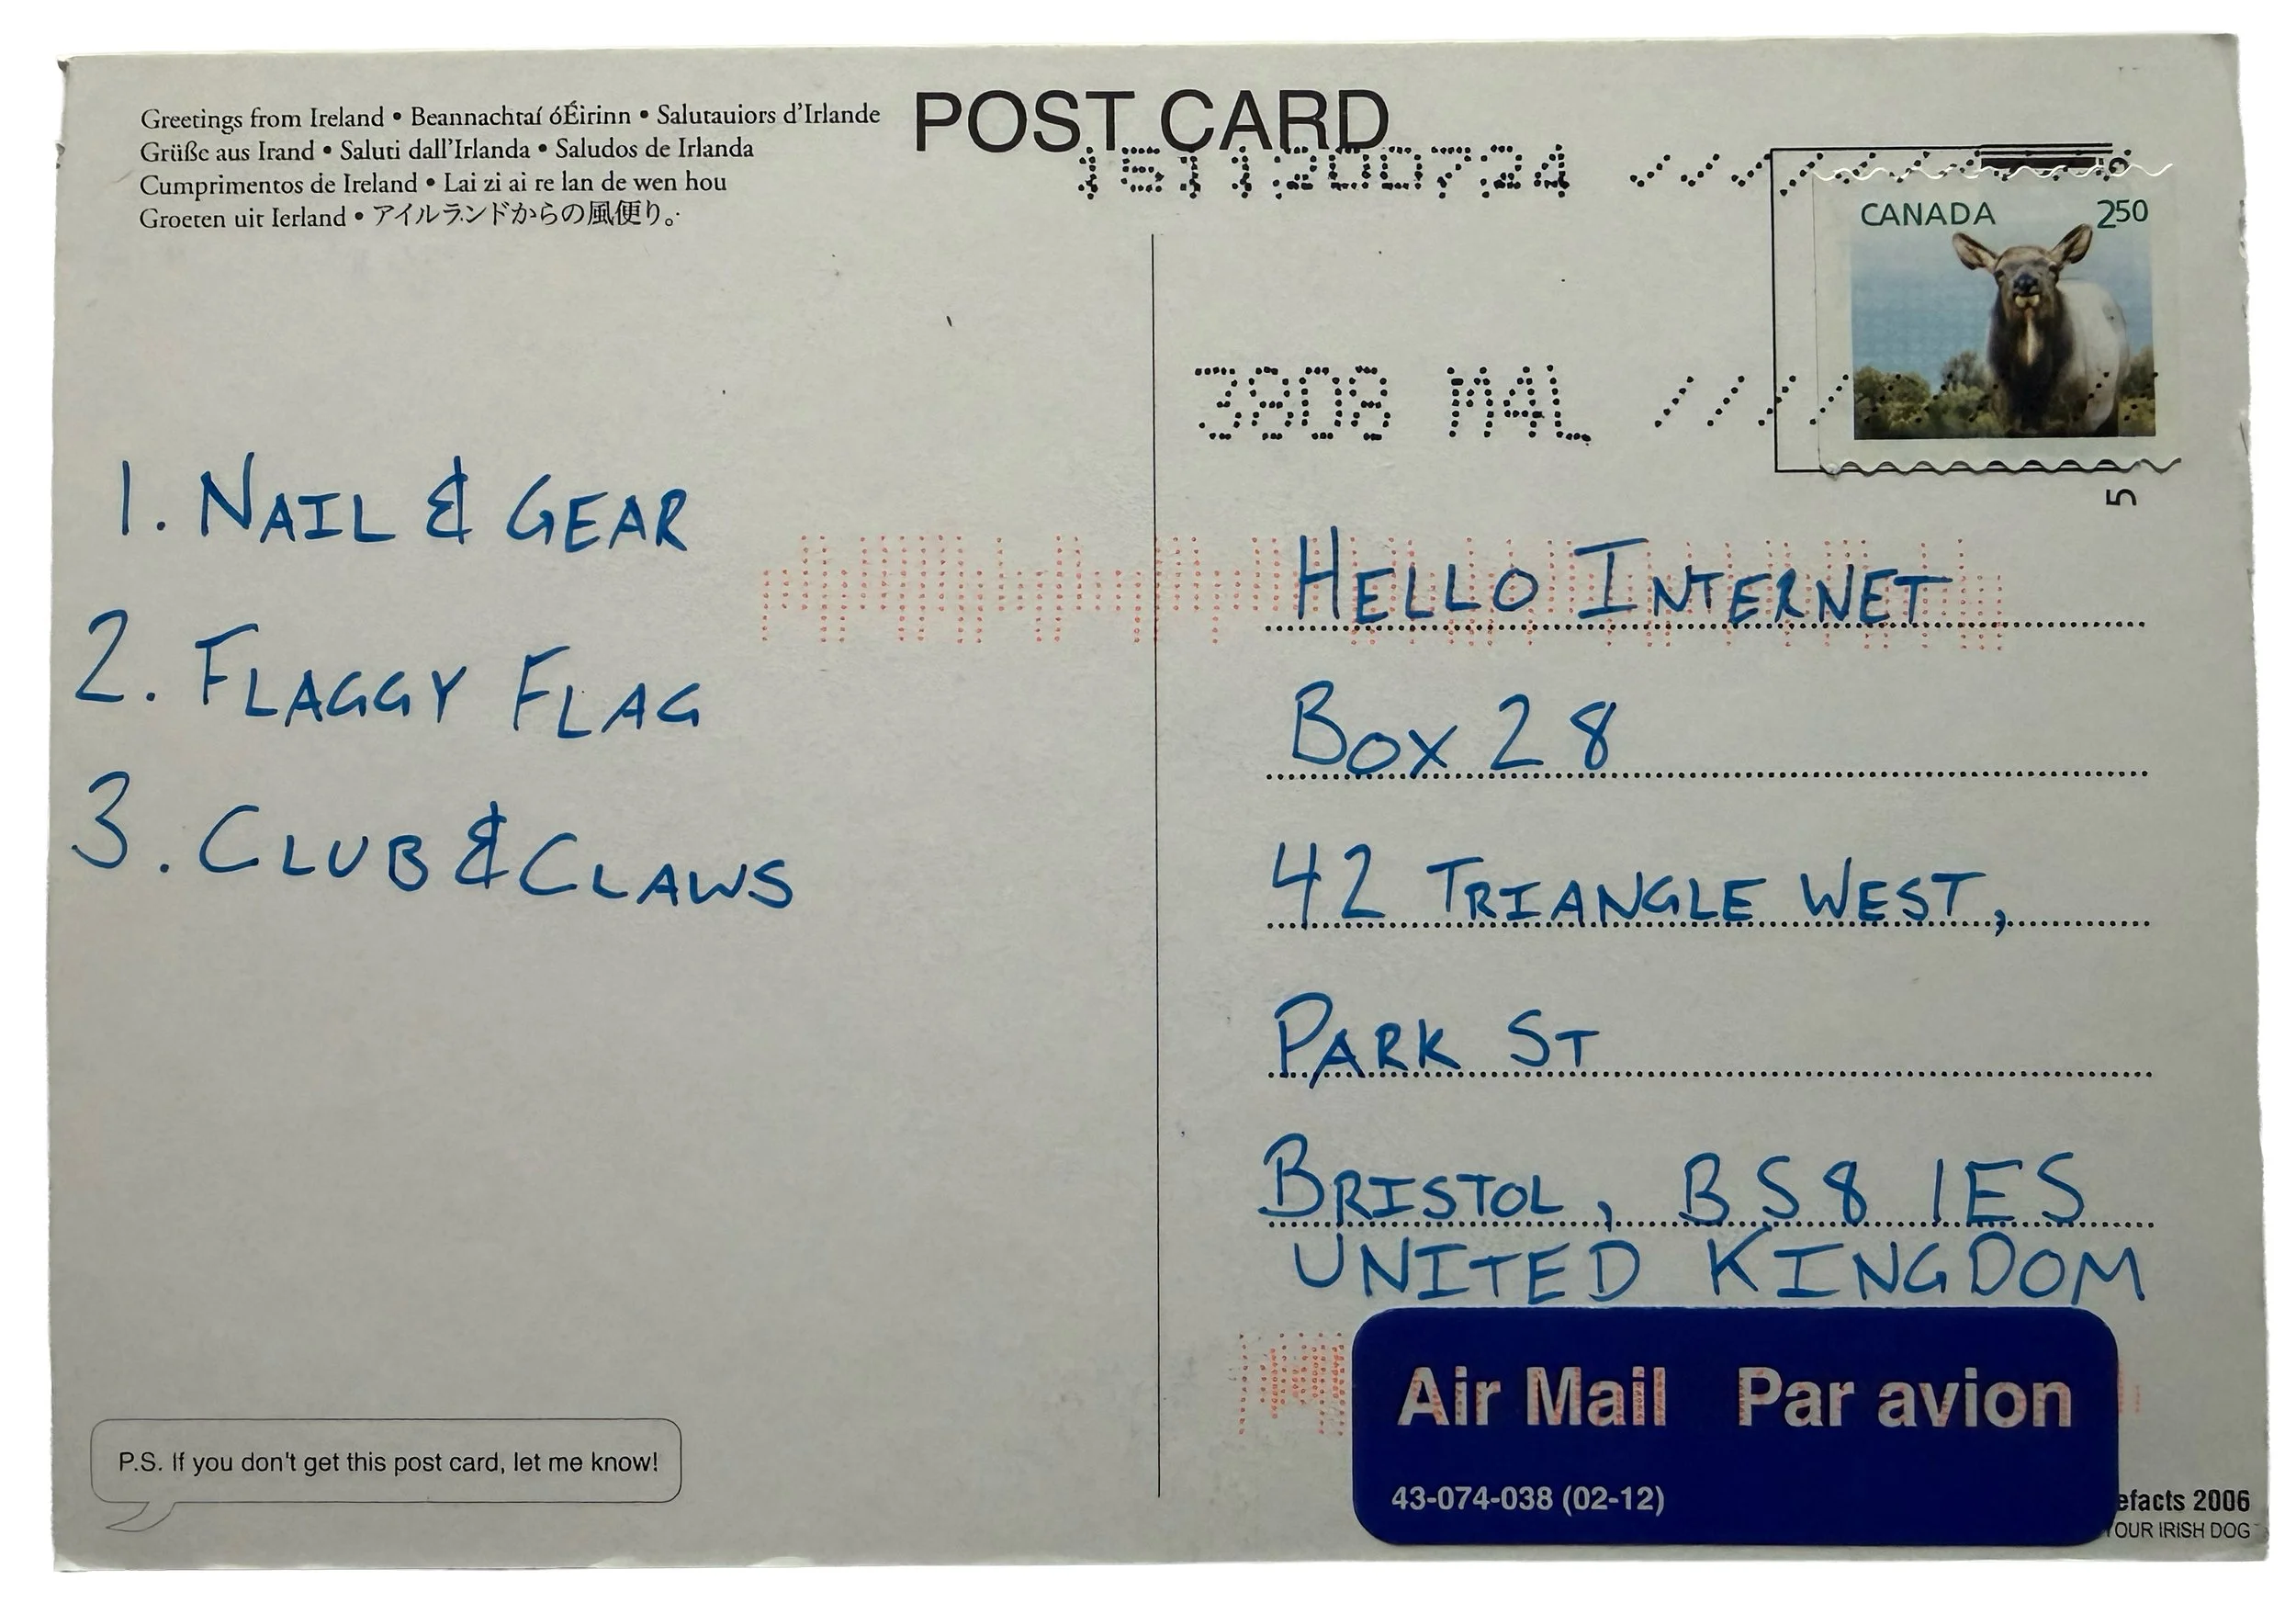 Greetings from Ireland • Beannachtaí óÉirinn • Salutauiors d'Irlande
Grüße aus Irand • Saluti dall'Irlanda • Saludos de Irlanda
Cumprimentos de Ireland • Lai zi ai re lan de wen hou
Groeten uit Ierland • アイルランドからの風便り。
POST CARD
CANADA 250
3808 M4L
5
1. NAIL & GEAR
2. FLAGGY FLAG
3. CLUB & CLAWS
HELLO INTERNET
BOX 28
42 TRIANGLE WEST,
PARK ST
BRISTOL, BS8 1ES
UNITED KINGDOM
Air Mail Par avion
43-074-038 (02-12)
P.S. If you don't get this post card, let me know!
efacts 2006
YOUR IRISH DOG